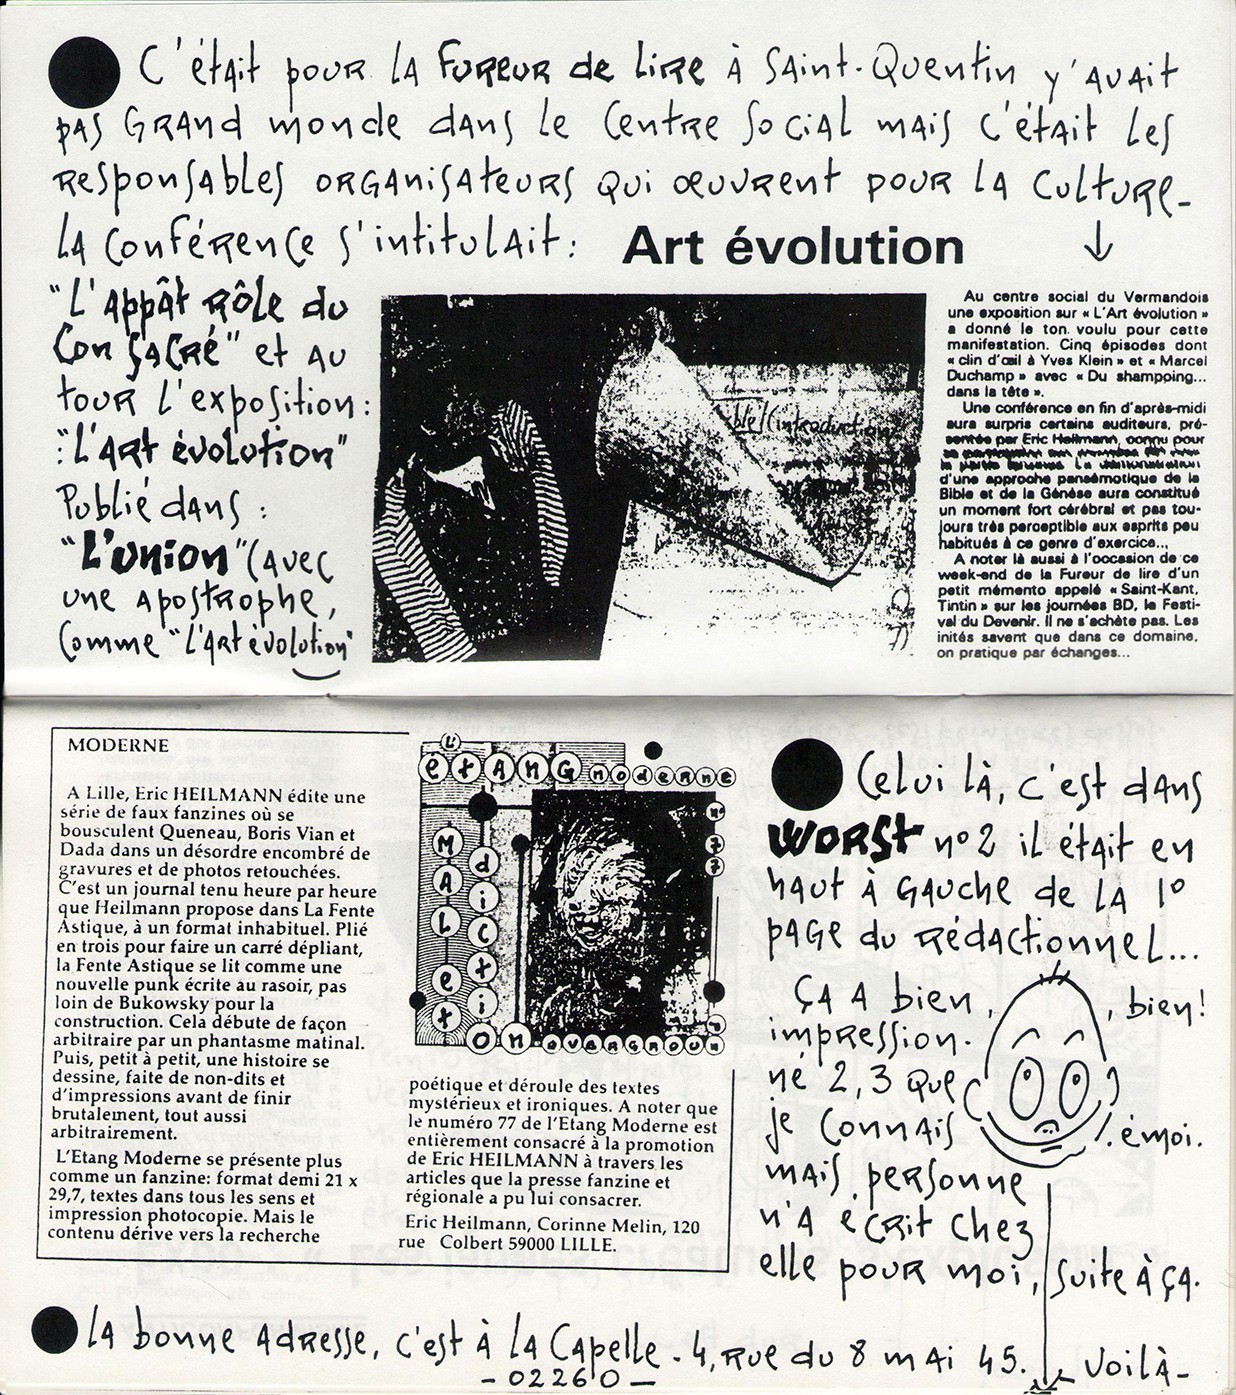 C'était pour la Fureur de Lire à Saint-Quentin y'avait
pas grand monde dans le Centre Social mais c'était les
responsables organisateurs qui œuvrent pour la Culture-
la Conférence s'intitulait :
Art évolution
"L'Appât rôle du
Con Sacré" et au
tour l'exposition :
: "L'Art évolution"
Publié dans :
"L'Union" (avec
une apostrophe,
Comme "L'Art évolution"
ble/(introduction
Au centre social du Vermandois
une exposition sur « L'Art évolution »
a donné le ton voulu pour cette
manifestation. Cinq épisodes dont
« clin d'œil à Yves Klein » et « Marcel
Duchamp » avec « Du shampping...
dans la tête ».
Une conférence en fin d'après-midi
aura surpris certains auditeurs, pré-
sentée par Eric Heilmann, connu pour
d'une approche pansémotique de la
Bible et de la Génèse aura constitué
un moment fort cérébral et pas tou-
jours très perceptible aux esprits peu
habitués à ce genre d'exercice...
A noter là aussi à l'occasion de ce
week-end de la Fureur de lire d'un
petit mémento appelé « Saint-Kant,
Tintin » sur les journées BD, le Festi-
val du Devenir. Il ne s'achète pas. Les
inités savent que dans ce domaine,
on pratique par échanges...
MODERNE
A Lille, Eric HEILMANN édite une
série de faux fanzines où se
bousculent Queneau, Boris Vian et
Dada dans un désordre encombré de
gravures et de photos retouchées.
C'est un journal tenu heure par heure
que Heilmann propose dans La Fente
Astique, à un format inhabituel. Plié
en trois pour faire un carré dépliant,
la Fente Astique se lit comme une
nouvelle punk écrite au rasoir, pas
loin de Bukowsky pour la
construction. Cela débute de façon
arbitraire par un phantasme matinal.
Puis, petit à petit, une histoire se
dessine, faite de non-dits et
d'impressions avant de finir
brutalement, tout aussi
arbitrairement.
L'Etang Moderne se présente plus
comme un fanzine: format demi 21 x
29,7, textes dans tous les sens et
impression photocopie. Mais le
contenu dérive vers la recherche
L'
etANG moderne
n° 77
MALet
dictiOn
OVARGROUN
poétique et déroule des textes
mystérieux et ironiques. A noter que
le numéro 77 de l'Etang Moderne est
entièrement consacré à la promotion
de Eric HEILMANN à travers les
articles que la presse fanzine et
régionale a pu lui consacrer.
Eric Heilmann, Corinne Melin, 120
rue Colbert 59000 LILLE.
Celui là, c'est dans
WORST n°2 il était en
haut à gauche de la 1°
page du rédactionnel...
ça a bien, , bien!
impression.
né 2,3 que
je connais émoi.
mais personne
n'a ecrit chez
elle pour moi, suite à ça.
La bonne adresse, c'est à la Capelle - 4, rue du 8 mai 45. voilà-
- 02260 -